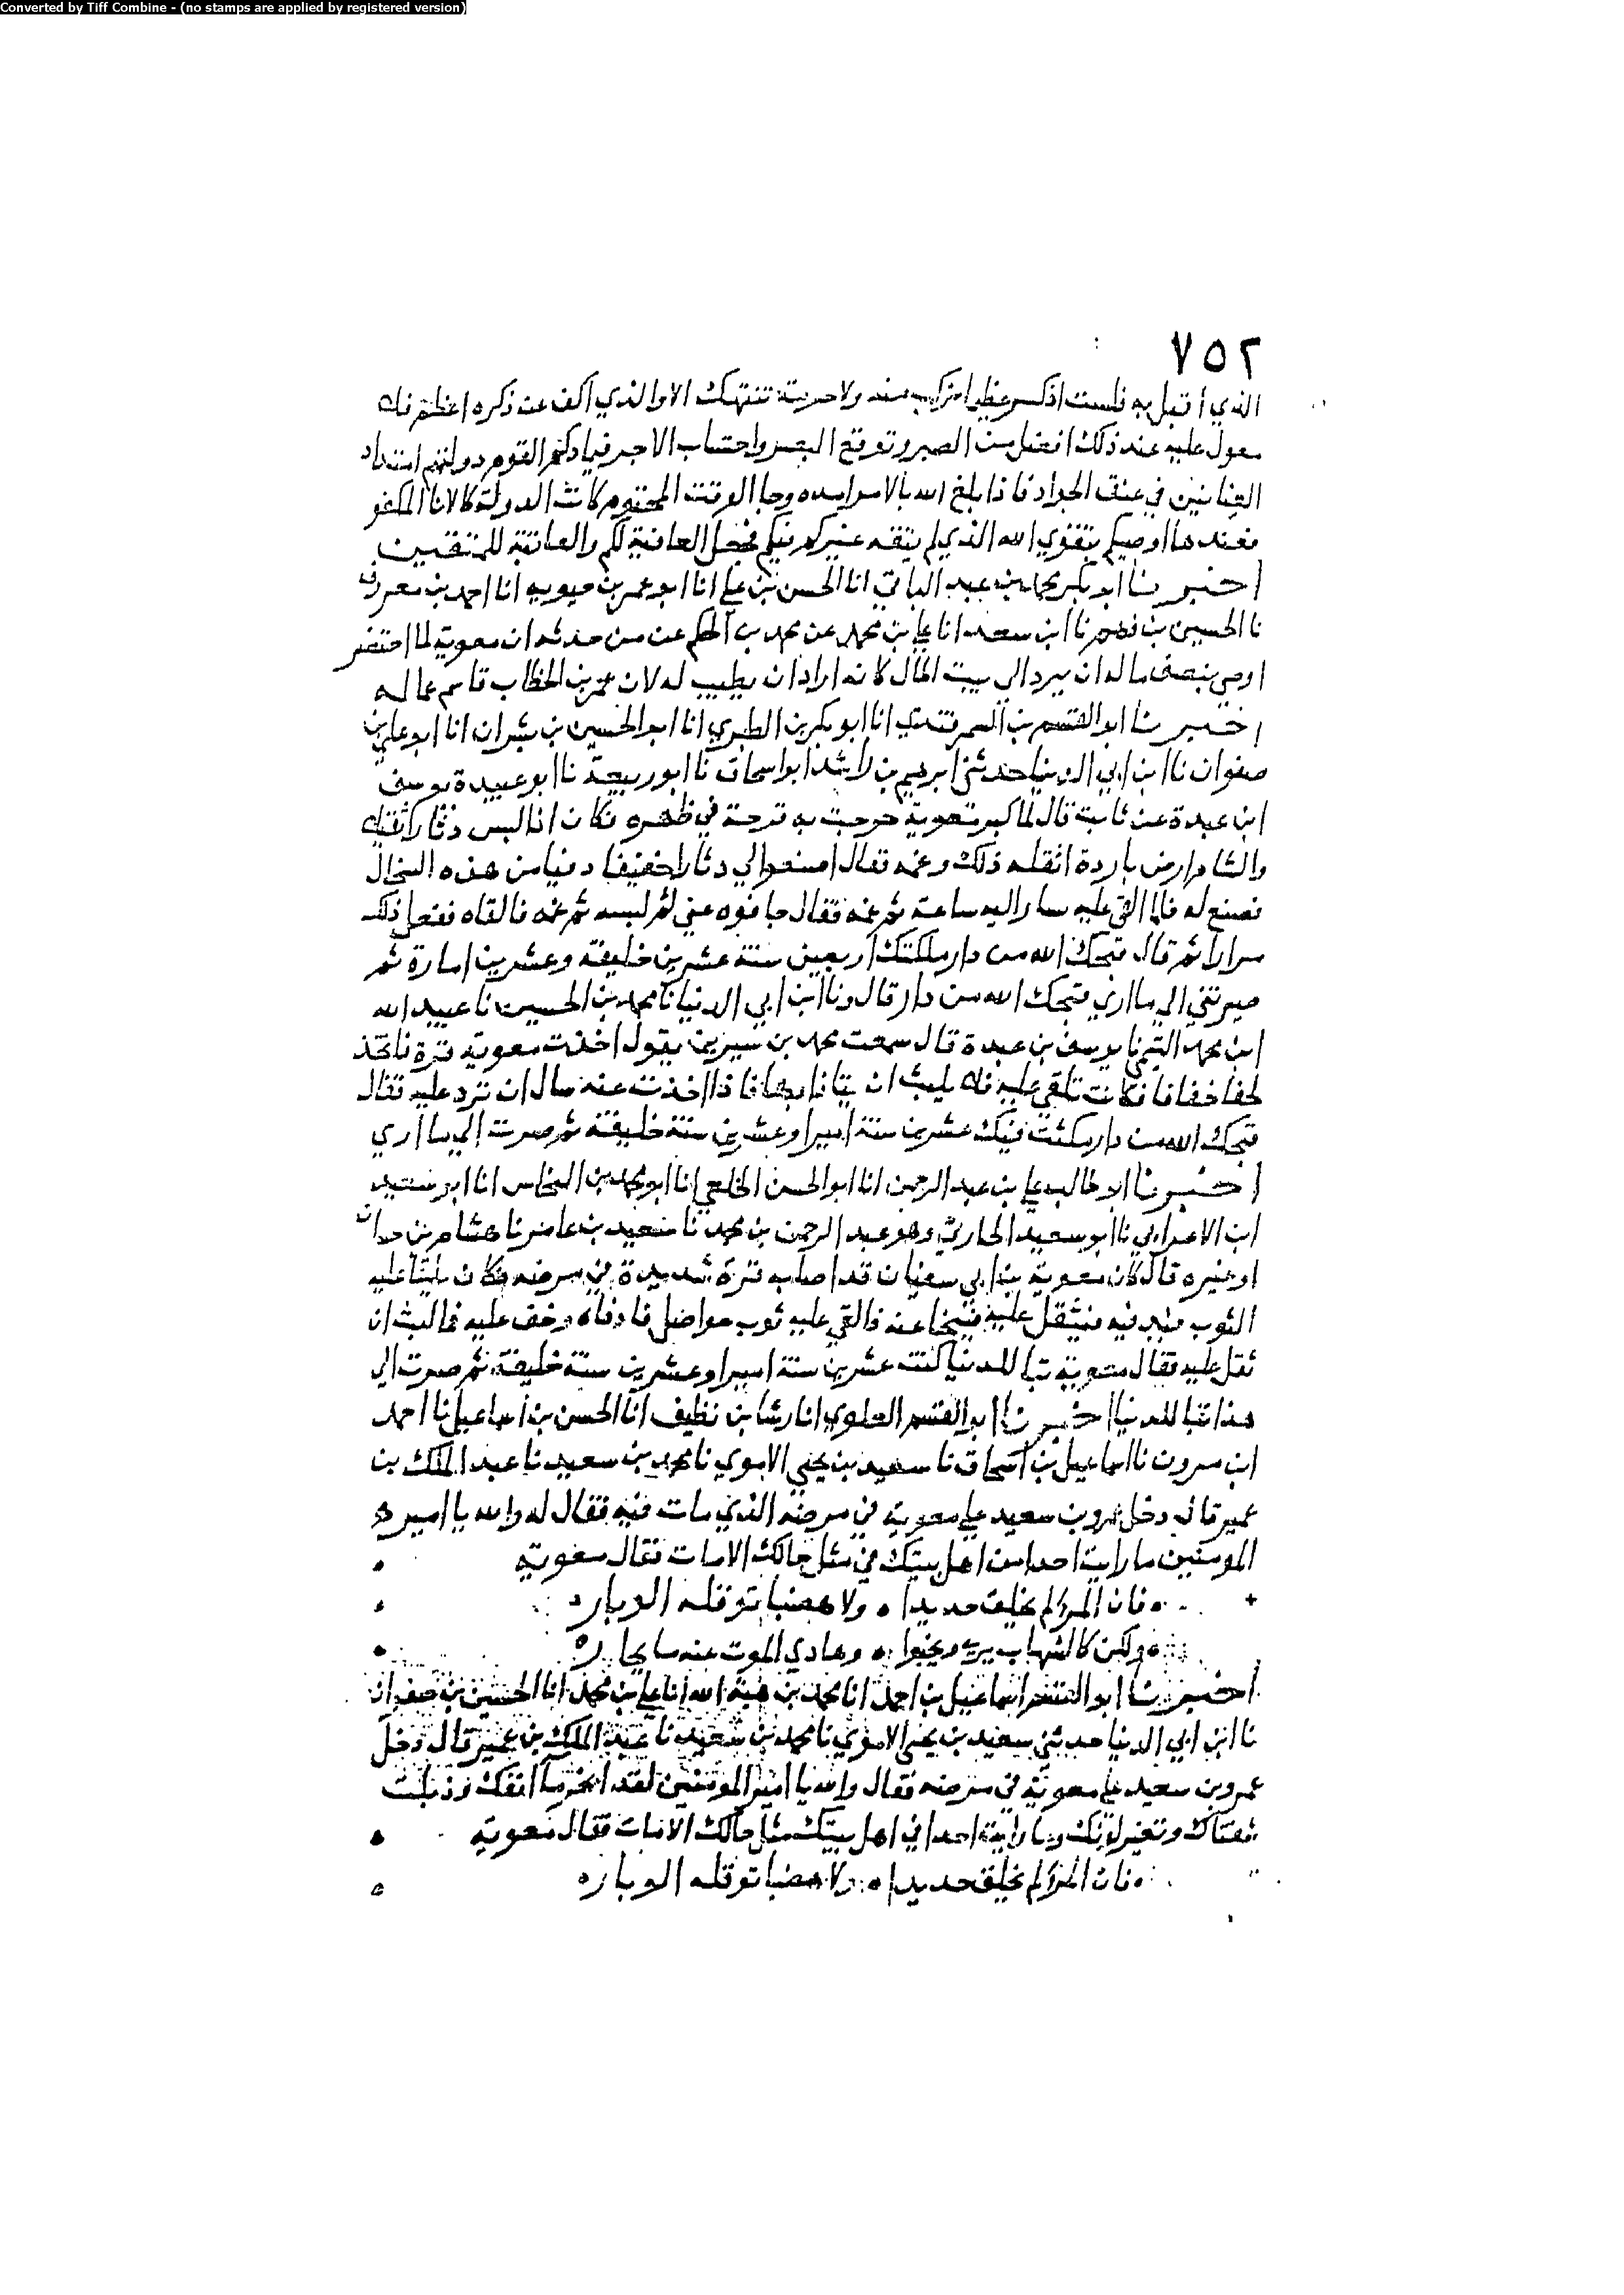 Converted by Tiff Combine - (no stamps are applied by registered version)
٧٥٢
الذي اقبل به فلست اذكر عظيما يركب منه ولا حرمة تنتهك الا والذي اكف عن ذكره اعظم فلن
معول عليه عند ذلك افضل من الصبر وتوقع البصر واحتساب الاجر فيمادكم القوم دولتهم امتداد
العنانين في عنق الجواد فاذا بلغ الله بالامر امده وجا الوقت المحتوم كانت الدولة كالانا المكفو
فعندها اوصيكم بتقوي الله الذي لم يتقه غيركم فيكم فجعل العافية لكم والعاقبة للمتقين
اخبرنا ابو بكر محمد بن عبد الباقي انا الحسن بن علي انا ابو عمر بن حيويه انا احمد بن معروف
نا الحسين بن فهم نا ابن سعد انا علي بن محمد عن محمد بن الحكم عن من حدثه ان معوية لما احتضر
اوصي بنصف ماله ان يرد الي بيت المال كانه اراد ان يطيب له لان عمر بن الخطاب قاسم عماله
اخبرنا ابو القسم بن السمرقندي انا ابو بكر بن الطبري انا ابو الحسين بن بشران انا ابو علي بن
صفوان نا ابن ابي الدنيا حدثني ابرهيم بن راشد ابو اسحاق نا ابو ربيعة نا ابو عبيدة يوسف
ابن عبدة عن ثابت قال لما كبر معوية خرجت به قرحة في ظهره فكان اذا لبس دثارا ثقيلا
والشام ارض باردة اثقله ذلك وغمه فقال اصنعوا لي دثارا خفيفا دفيا من هذه السخال
فصنع له فلما القي عليه سار اليه ساعة ثم غمه فقال جافوه عني ثم لبسه ثم غمه فالقاه ففعل ذلك
مرارا ثم قال قبحك الله من دار ملكتك اربعين سنة عشرين خليفة وعشرين امارة ثم
صيرتني الي ما اري قبحك الله من دار قال ونا ابن ابي الدنيا نا محمد بن الحسين نا عبيد الله
ابن محمد التيمي نا يوسف بن عبدة قال سمعت محمد بن سيرين يقول اخذت معوية قرة فاتخذ
لحفا خفافا فكانت تلقي عليه فلا يلبث ان يتاذا بها فاذا اخذت عنه سال ان ترد عليه فقال
قبحك الله من دار مكثت فيك عشرين سنة اميرا وعشرين سنة خليفة ثم صرت الي ما اري
اخبرنا ابو طالب علي بن عبد الرحمن انا ابو الحسن الخلعي انا ابو محمد بن النحاس انا ابو سعيد
ابن الاعرابي نا ابو سعيد الحارثي وهو عبد الرحمن بن محمد نا سعيد بن عامر نا هشام بن حسان
او غيره قال كان معوية بن ابي سفيان قد اصابه قرة شديدة في مرضه فكان يلقا عليه
الثوب فيثقل عليه فيتخا عنه فالقي عليه ثوب حواصل فادفاه وخف عليه فما لبث ان
ثقل عليه فقال معوية تبا للدنيا كنت عشرين سنة اميرا وعشرين سنة خليفة ثم صرت الي
هذا تبا للدنيا اخبرنا ابو القسم العلوي انا رشا بن نظيف انا الحسن بن اسماعيل نا احمد
ابن مرون نا اسماعيل بن اسحاق نا سعيد بن يحيي الاموي نا محمد بن سعيد نا عبد الملك بن
عمير قال دخل عمرو بن سعيد علي معوية في مرضه الذي مات فيه فقال له والله يا امير
المومنين ما رايت احدا من اهل بيتك في مثل حالك الا مات فقال معوية
فان المرا لم يخلق حديدا ولا هضبا توقله الوبار
ولكن كالشهاب يري ويخبوا وهادي الموت عنه ما يحار
اخبرنا ابو القسم اسماعيل بن احمد انا محمد بن هبة الله انا علي بن محمد انا الحسين بن صفوان
نا ابن ابي الدنيا حدثني سعيد بن يحيي الاموي نا محمد بن سعيد نا عبد الملك بن عمير قال دخل
عمرو بن سعيد علي معوية في مرضه فقال والله يا امير المومنين لقد انخرم انفك وذبلت
شفتاك وتغير لونك وما رايت احدا في اهل بيتك مثل حالك الا مات فقال معوية
فان المرا لم يخلق حديدا ولا هضبا توقله الوبار